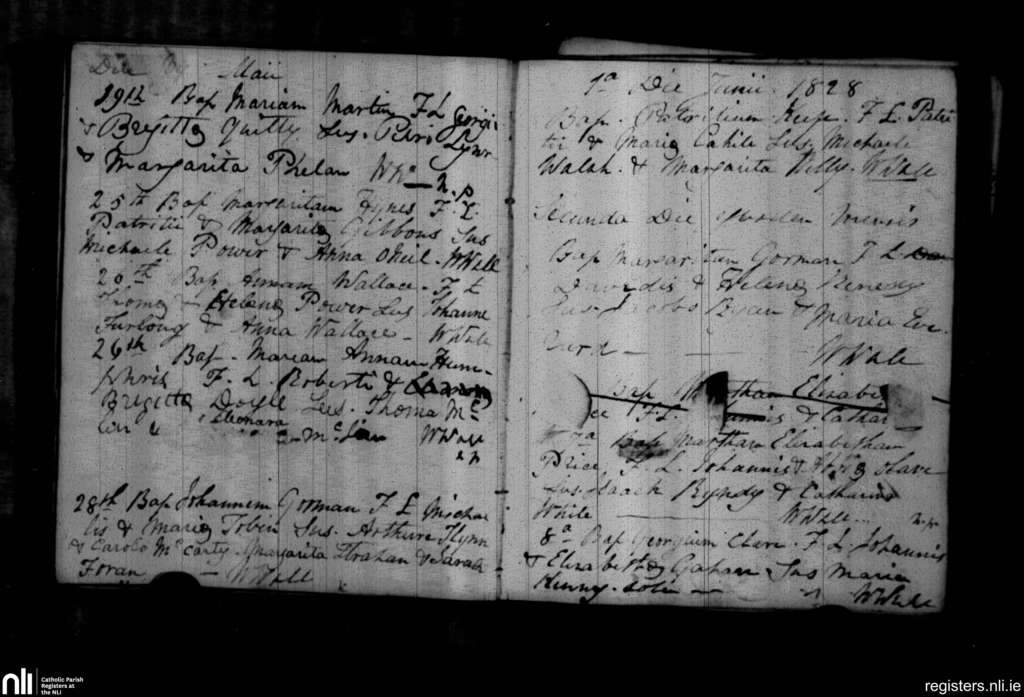 Die Maii
19th Bap Mariam Martin F L Georgii
& Brigittæ Quilty Sus. Petro Lynr
& Margarita Phelan W Wh
n.p
25th Bap Margaritam Hynes F. L.
Patritii & Margaritæ Gibbons Sus
Michaele Power & Anna ONeil - WWall
Bap Annam Wallace - F L
Thomæ & Helenæ Power Sus Johanne
Furlong & Anna Wallace - WWall
26th Bap - Mariam Annam Hum-
phris F. L. Roberti &
Brigitta Doyle Sus. Thoma Mc
& Elleonara
Mc WWall
np
28th Bap Johannem Gorman F L Michae
lis & Mariæ Tobin Sus. Arthuro Flynn
& Carolo McCarty Margarita Strahan & Sarah
Foran - WWall
1a Die Junii - 1828
Bap - Patritium Keefe - F L Patri
tii & Mariæ Cahill Sus. Michaele
Walsh - & Margarita Kelly - WWall
Secunda Die ejusdem Mensis
Bap Margaritam Gorman F L
Davidis & Helenæ Kenedy
Sus Jacobo Ryan & Maria Eve
rard - - WWall
Bap Elizabe
F L & Cathar
7a Bap Martham Elizabetham
Price, F. L. Johannis & Slave
Sus Isaach Byndy & Catharina
White - WWall... n.p.
8a Bap Georgium Clere - F L. Johannis
& Elizabethæ Gahan Sus Maria
Kenny - sola - WWall
nli
Catholic Parish
Registers at
the NLI
registers.nli.ie